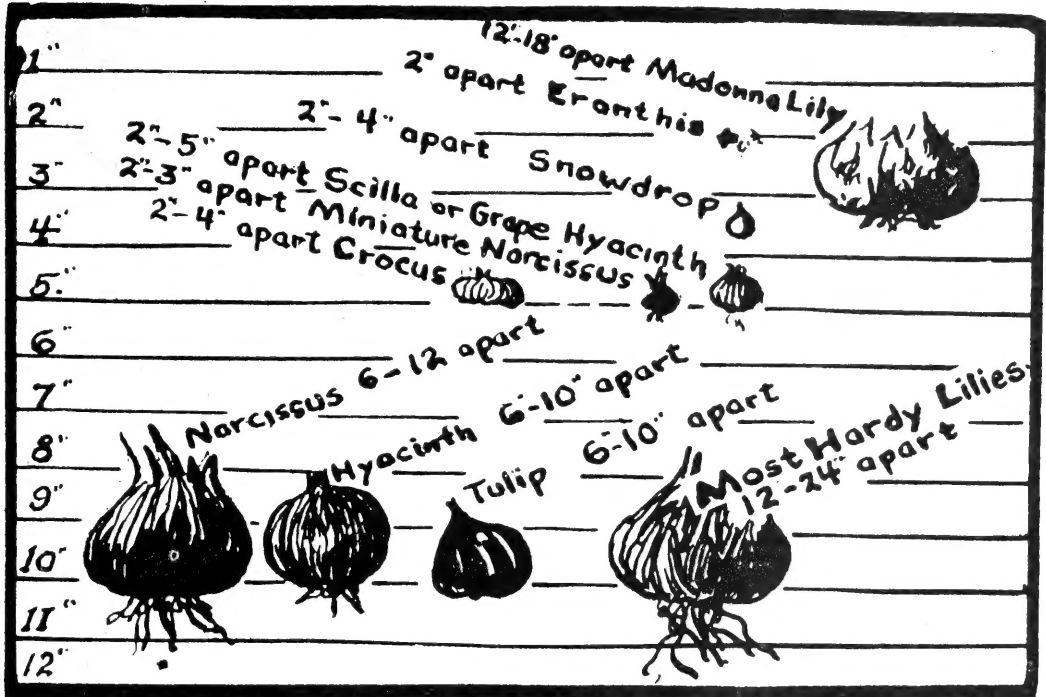 12"-18" apart Madonna Lily
1"
2" apart Eranthis
2"
2"-4" apart Snowdrop
2"-5" apart Scilla or Grape Hyacinth
3"
2"-3" apart Miniature Narcissus
2"-4" apart Crocus
4"
5"
6"
7"
Narcissus 6-12 apart
Hyacinth 6"-10" apart
Tulip 6"-10" apart
Most Hardy Lilies
12-24" apart
8"
9"
10"
11"
12"